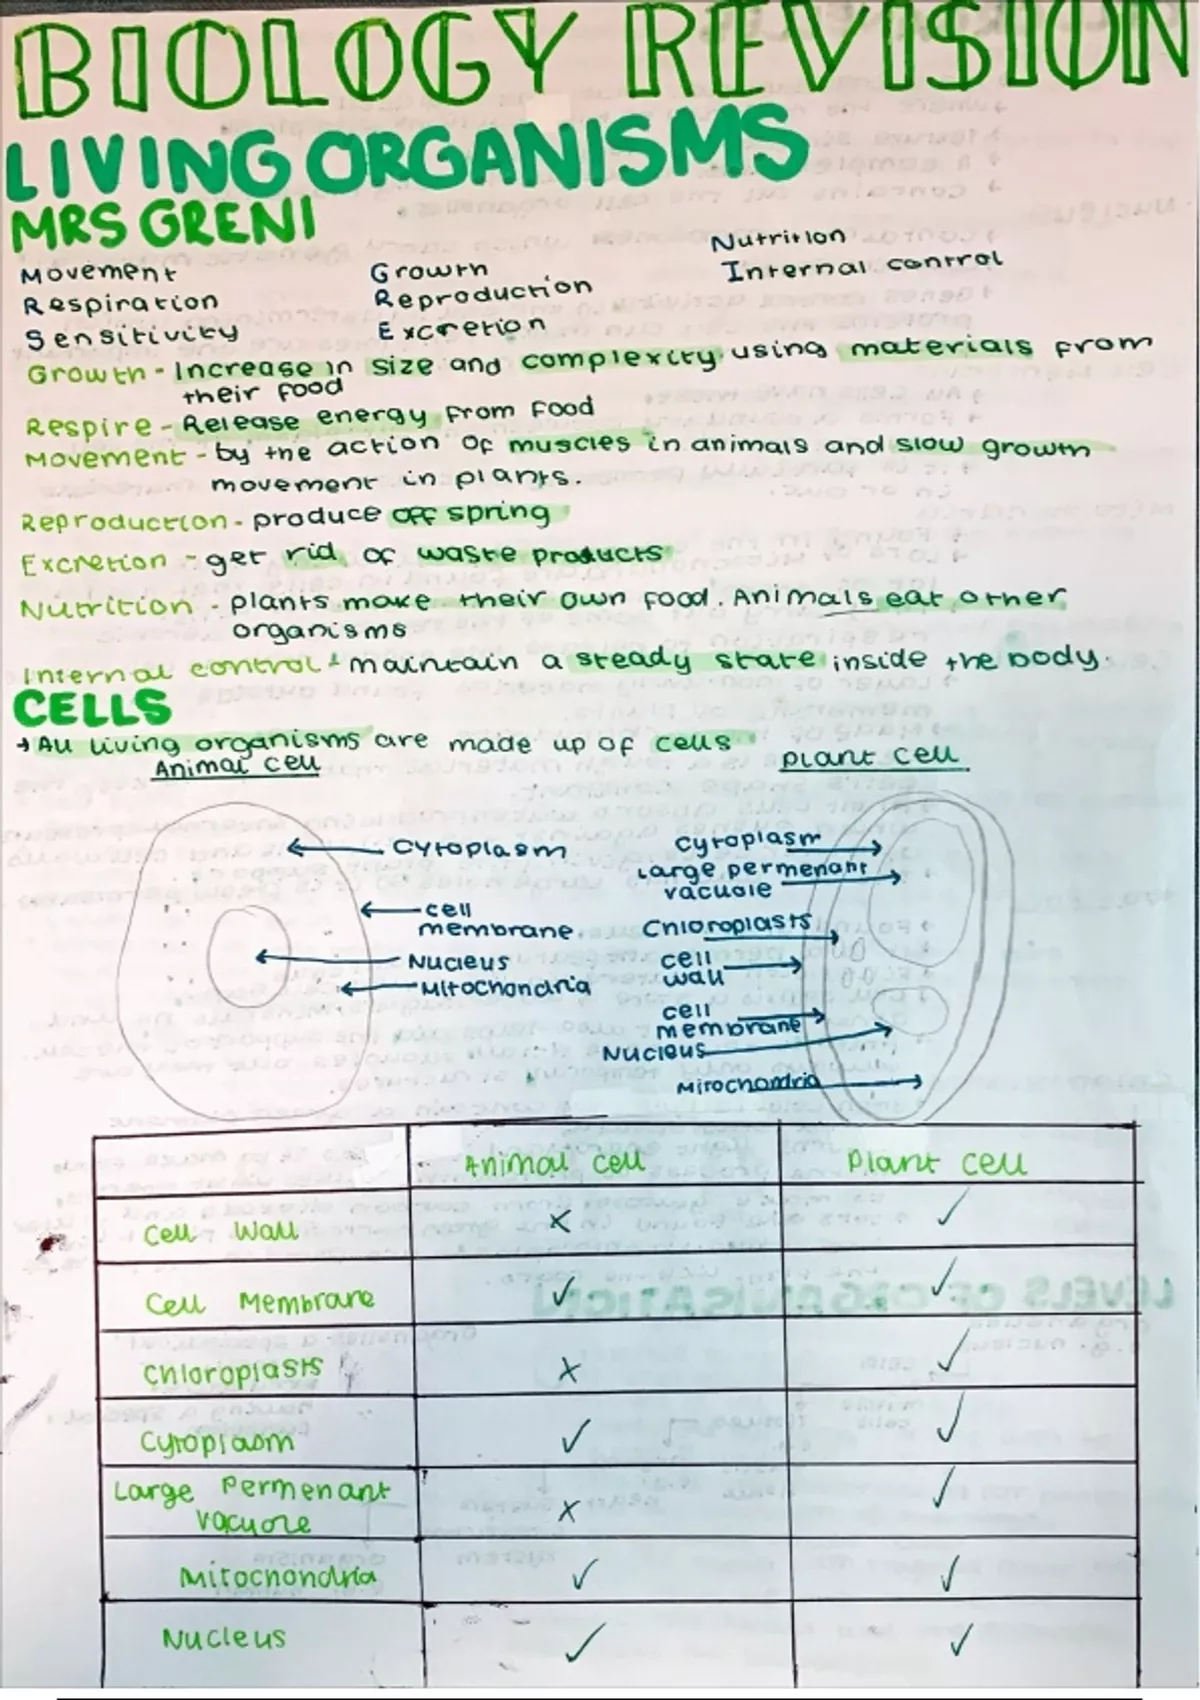 BIOLOGY REVISION
LIVING ORGANISMS
MRS GRENI
Movement
Respiration
Sensitivity
Growth
Reproduction
Excretion
Nutrition
Internal control
Growth - Increase in size and complexity using materials from
their food
Respire - Release energy from food
Movement - by the action of muscles in animals and slow growth
movement in plants.
Reproduction - produce offspring
Excretion - get rid of waste products
Nutrition - plants make their own food. Animals eat other
organisms
Internal control - maintain a steady state inside the body.
CELLS
→ All living organisms are made up of cells
Animal cell
Cytoplasm
cell
membrane
Nucleus
Mitochondria
plant cell
Cytoplasm
Large permenant
vacuole
Chloroplasts
cell
wall
cell
membrane
Nucleus
Mitochondria
Animal cell Plant cell
Cell Wall ✗ ✓
Cell Membrane ✓ ✓
Chloroplasts ✗ ✓
Cytoplasm ✓ ✓
Large Permenant
Vacuole ✗ ✓
Mitochondria ✓ ✓
Nucleus ✓ ✓